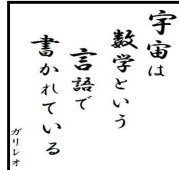 宇宙は
数学という
言語で
書かれている
ガリレオ